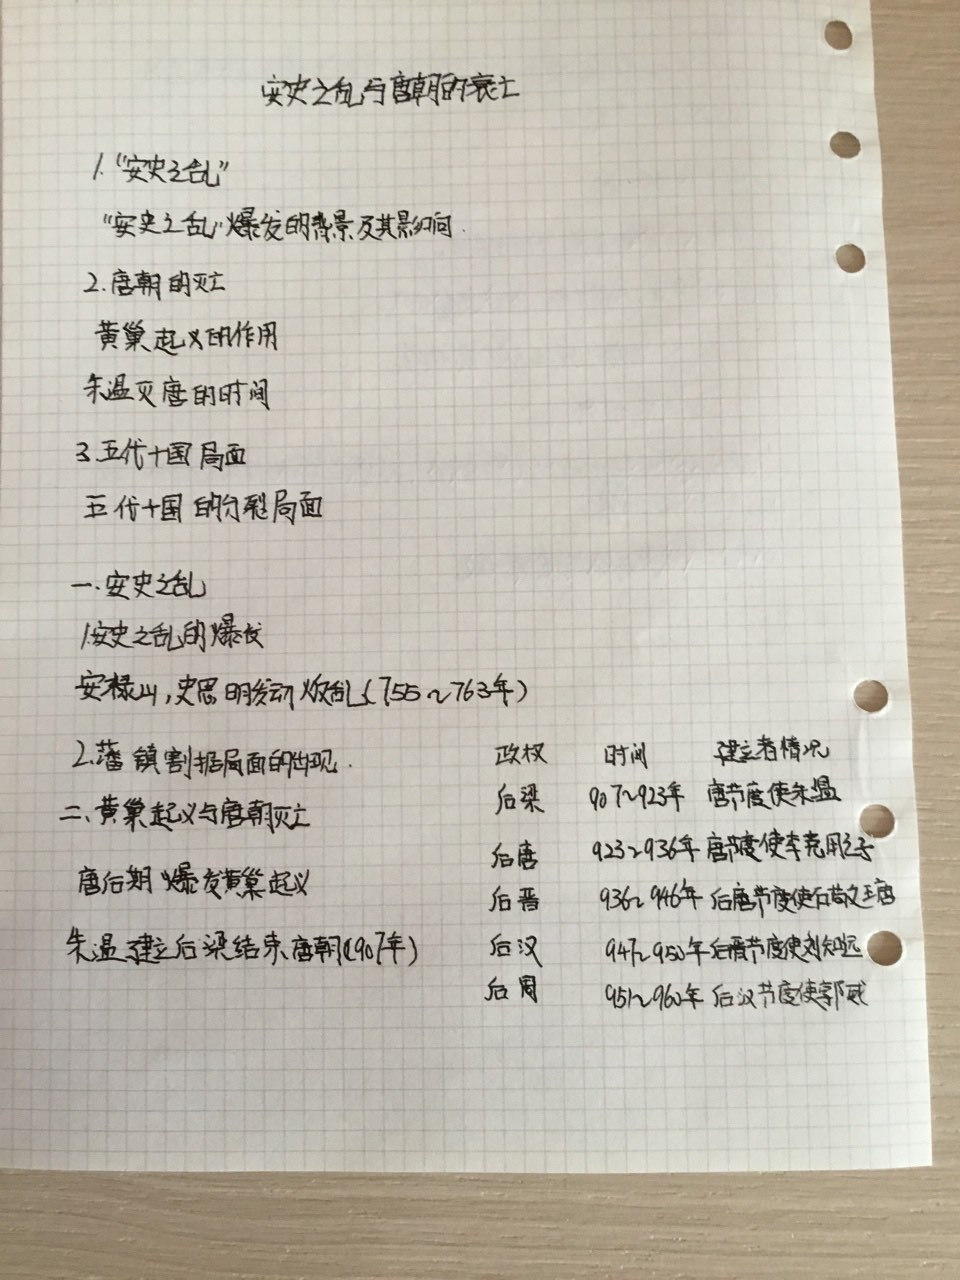 安史之乱与唐朝的衰亡
1.“安史之乱”
“安史之乱”爆发的背景及其影响.
2.唐朝的灭亡
黄巢起义的作用
朱温灭唐的时间
3.五代十国局面
五代十国的分裂局面
一.安史之乱
1.安史之乱的爆发
安禄山,史思明发动叛乱(755~763年)
2.藩镇割据局面的出现.
二、黄巢起义与唐朝灭亡
唐后期爆发黄巢起义
朱温建立后梁结束唐朝(907年)
政权 时间 建立者情况
后梁 907~923年 唐节度使朱温
后唐 923~936年 唐节度使李克用之子
后晋 936~946年 后唐节度使石敬
后汉 947~950年 后晋节度使刘知远
后周 951~960年 后汉节度使郭威